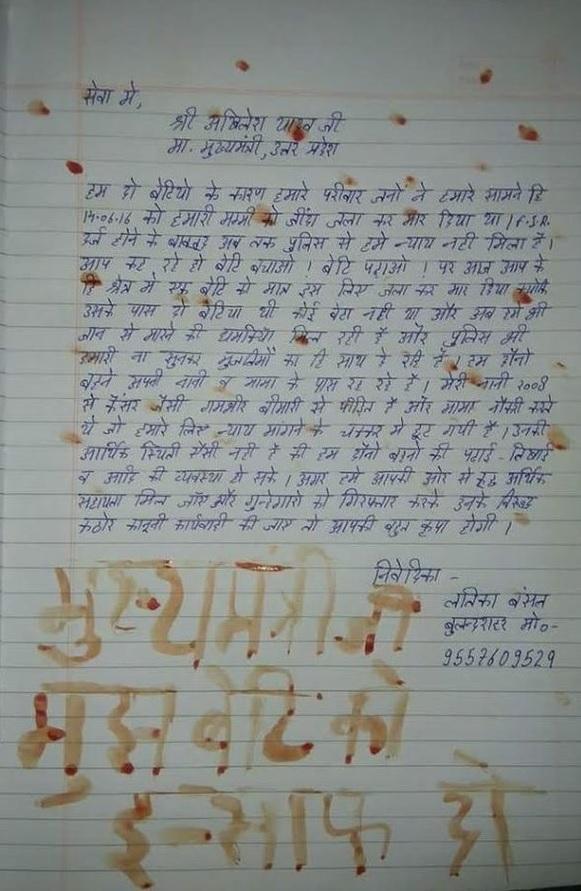 सेवा मे,
श्री अखिलेश यादव जी
मा. मुख्यमंत्री, उत्तर प्रदेश
हम दो बेटियो के कारण हमारे परीवार जनो ने हमारे सामने हि
14-06-16 को हमारी मम्मी को जींदा जला कर मार दिया था। F.I.R.
दर्ज होने के बावजूद अब तक पुलिस से हमे न्याय नही मिला है।
आप कह रहे हो बेटि बचाओ। बेटि पढाओ। पर आज आप के
हि क्षेत्र मे एक बेटि को मात्र इस लिए जला कर मार दिया क्योंकि
उसके पास दो बेटिया थी कोई बेटा नही था और अब हमे भी
जान से मारने की धमकिया मिल रही है और पुलिस भी
हमारी ना सुनकर मुजरिमों का हि साथ दे रही है। हम दोंनो
बहने अपनी नानी व मामा के पास रह रहे है। मेरी नानी 2008
से कैंसर जैसी गमभीर बीमारी से पीडित है और मामा नौकरी करते
थे जो हमारे लिए न्याय मांगने के चक्कर मे छूट गयी है। उनकी
आर्थिक स्थिती ऐसी नही है की हम दोंनो बहनो की पढाई-लिखाई
व आदि की व्यवस्था हो सके। अगर हमे आपकी ओर से कुछ आर्थिक
सहायता मिल जाए और गुनेगारो को गिरफ्तार करके उनके विरूद्ध
कठोर कानूनी कार्यवाही की जाए तो आपकी बहुत कृपा होगी।
निवेदिका -
लतिका बंसल
बुलन्दशहर मो०-
9557609529
मुख्यमंत्री जी
मुझ बेटि को
इन्साफ दो